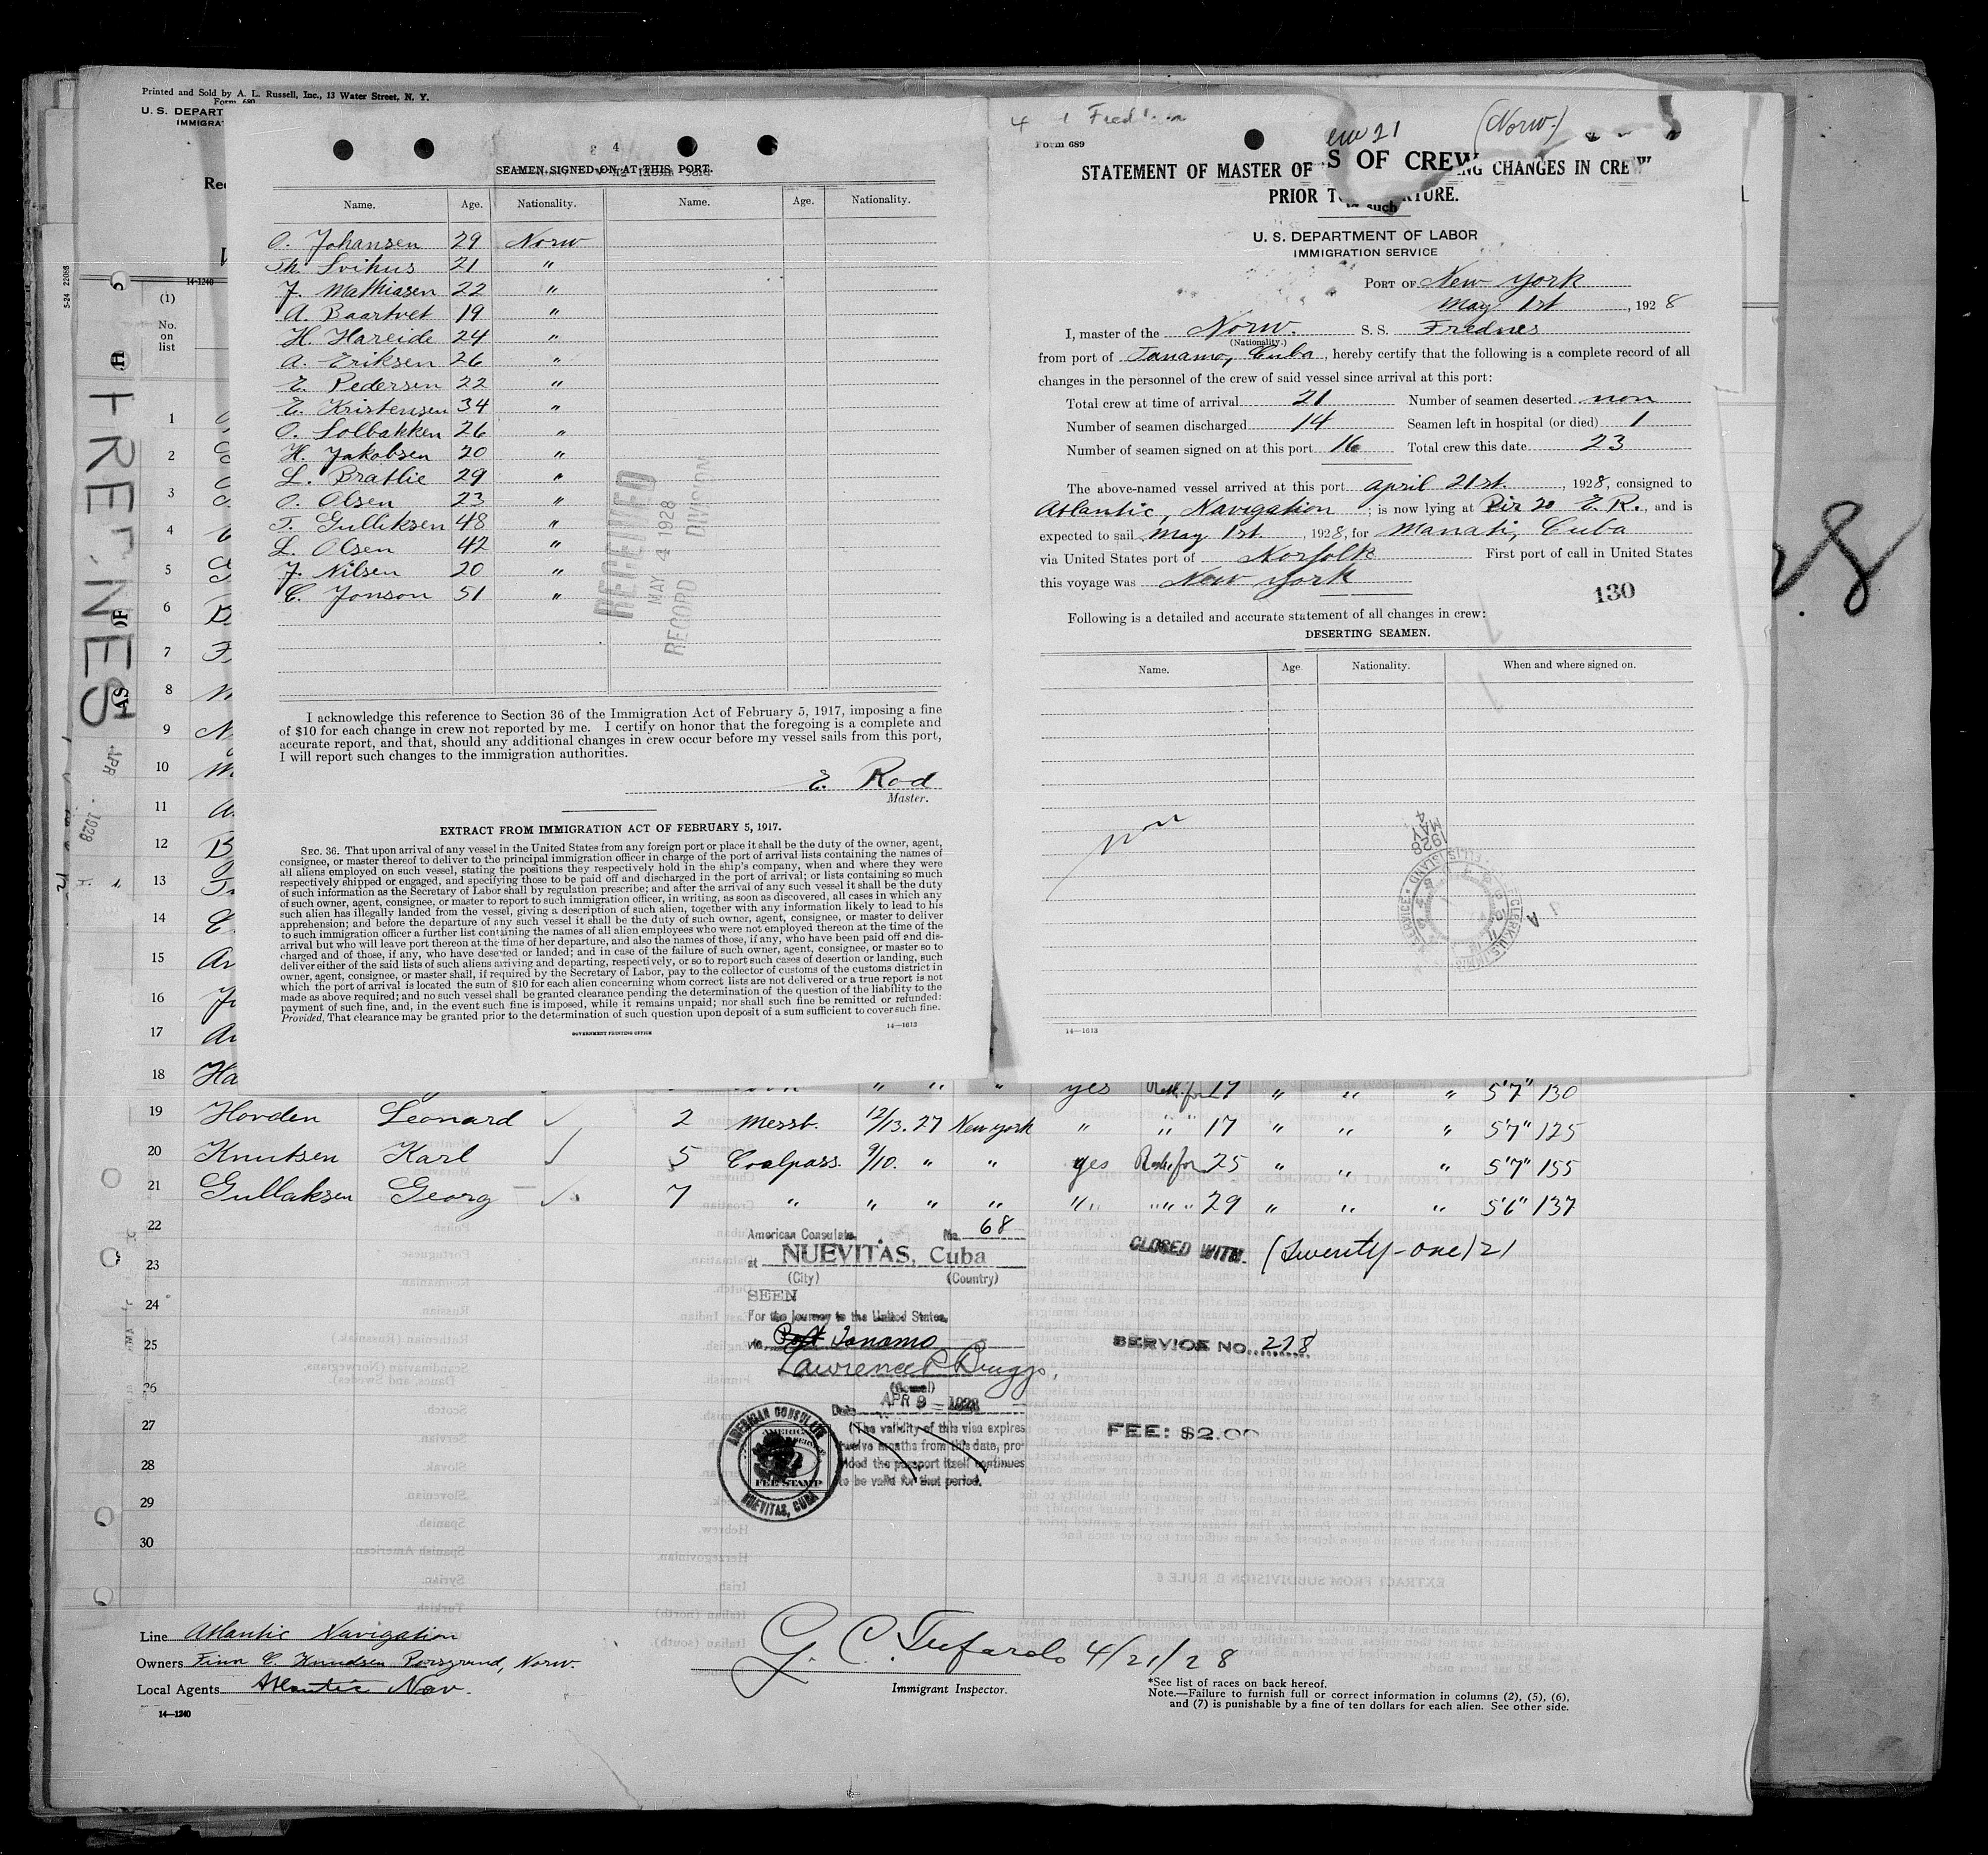 Printed and Sold by A. L. Russell, Inc., 13 Water Street, N. Y.
Form 680
U. S. DEPART
IMMIGRA
14-1240
(1)
No.
on
list
FREDNES
SEAMEN SIGNED ON AT THIS PORT.
Name. Age. Nationality. Name. Age. Nationality.
O. Johansen 29 Norw
Th. Svihus 21 "
J. Mathiasen 22 "
A. Baartvet 19 "
H. Hareide 24 "
A. Eriksen 26 "
E. Pedersen 22 "
E. Kristensen 34 "
O. Solbakken 26 "
H. Jakobsen 20 "
L. Bratlie 29 "
O. Olsen 23 "
T. Gulliksen 48 "
L. Olsen 42 "
J. Nilsen 20 "
C. Jonson 51 "
RECEIVED
MAY 4 1928
RECORD DIVISION
I acknowledge this reference to Section 36 of the Immigration Act of February 5, 1917, imposing a fine
of $10 for each change in crew not reported by me. I certify on honor that the foregoing is a complete and
accurate report, and that, should any additional changes in crew occur before my vessel sails from this port,
I will report such changes to the immigration authorities.
E. Rod
Master.
EXTRACT FROM IMMIGRATION ACT OF FEBRUARY 5, 1917.
SEC. 36. That upon arrival of any vessel in the United States from any foreign port or place it shall be the duty of the owner, agent,
consignee, or master thereof to deliver to the principal immigration officer in charge of the port of arrival lists containing the names of
all aliens employed on such vessel, stating the positions they respectively hold in the ship's company, when and where they were
respectively shipped or engaged, and specifying those to be paid off and discharged in the port of arrival; or lists containing so much
of such information as the Secretary of Labor shall by regulation prescribe; and after the arrival of any such vessel it shall be the duty
of such owner, agent, consignee, or master to report to such immigration officer, in writing, as soon as discovered, all cases in which any
such alien has illegally landed from the vessel, giving a description of such alien, together with any information likely to lead to his
apprehension; and before the departure of any such vessel it shall be the duty of such owner, agent, consignee, or master to deliver
to such immigration officer a further list containing the names of all alien employees who were not employed thereon at the time of the
arrival but who will leave port thereon at the time of her departure, and also the names of those, if any, who have been paid off and dis-
charged and of those, if any, who have deserted or landed; and in case of the failure of such owner, agent, consignee, or master so to
deliver either of the said lists of such aliens arriving and departing, respectively, or so to report such cases of desertion or landing, such
owner, agent, consignee, or master shall, if required by the Secretary of Labor, pay to the collector of customs of the customs district in
which the port of arrival is located the sum of $10 for each alien concerning whom correct lists are not delivered or a true report is not
made as above required; and no such vessel shall be granted clearance pending the determination of the question of the liability to the
payment of such fine, and, in the event such fine is imposed, while it remains unpaid; nor shall such fine be remitted or refunded:
Provided, That clearance may be granted prior to the determination of such question upon deposit of a sum sufficient to cover such fine.
GOVERNMENT PRINTING OFFICE
14—1613
21 (Norw.)
Form 689
STATEMENT OF MASTER OF S OF CREW NG CHANGES IN CREW
PRIOR T such RTURE.
U. S. DEPARTMENT OF LABOR
IMMIGRATION SERVICE
PORT OF New York
May 1st, 1928
I, master of the Norw. S. S. Frednes
(Nationality.)
from port of Tanamo, Cuba, hereby certify that the following is a complete record of all
changes in the personnel of the crew of said vessel since arrival at this port:
Total crew at time of arrival 21 Number of seamen deserted non
Number of seamen discharged 14 Seamen left in hospital (or died) 1
Number of seamen signed on at this port 16 Total crew this date 23
The above-named vessel arrived at this port april 21st., 1928, consigned to
Atlantic, Navigation; is now lying at Pir 20 E. R., and is
expected to sail May 1st., 1928, for Manati, Cuba
via United States port of Norfolk First port of call in United States
this voyage was New York
130
Following is a detailed and accurate statement of all changes in crew:
DESERTING SEAMEN.
Name. Age Nationality. When and where signed on.
1928
MAY
4
14—1613
1
2
3
4
5
6
7
8
9
10
11
12
13
14
15
16
17
18 Ha " " " yes 19 " " " 5'7" 130
19 Hovden Leonard 2 Messb. 12/13. 27 New York " " " 17 " " " 5'7" 125
20 Knutsen Karl 5 Coalpass. 9/10. " " yes 25 " " " 5'7" 155
21 Gullaksen Georg 7 " " " " " " " 29 " " " 5'6" 137
22
23
24
25
26
27
28
29
30
American Consulate No. 68
at NUEVITAS, Cuba
(City) (Country)
SEEN
For the journey to the United States.
via Port Tanamo
Lawrence P. Briggs,
(Consul)
Date APR 9 - 1928
(The validity of this visa expires
twelve months from this date, pro-
vided the passport itself continues
to be valid for that period.
AMERICAN CONSULATE
FEE STAMP
NUEVITAS, CUBA
CLOSED WITH (Twenty-one) 21
SERVICE NO. 278
FEE: $2.00
Line Atlantic Navigation
Owners Finn C. Knudsen Porsgrund, Norw.
Local Agents Atlantic Nav.
14—1240
4/21/28
Immigrant Inspector.
*See list of races on back hereof.
Note.—Failure to furnish full or correct information in columns (2), (5), (6),
and (7) is punishable by a fine of ten dollars for each alien. See other side.